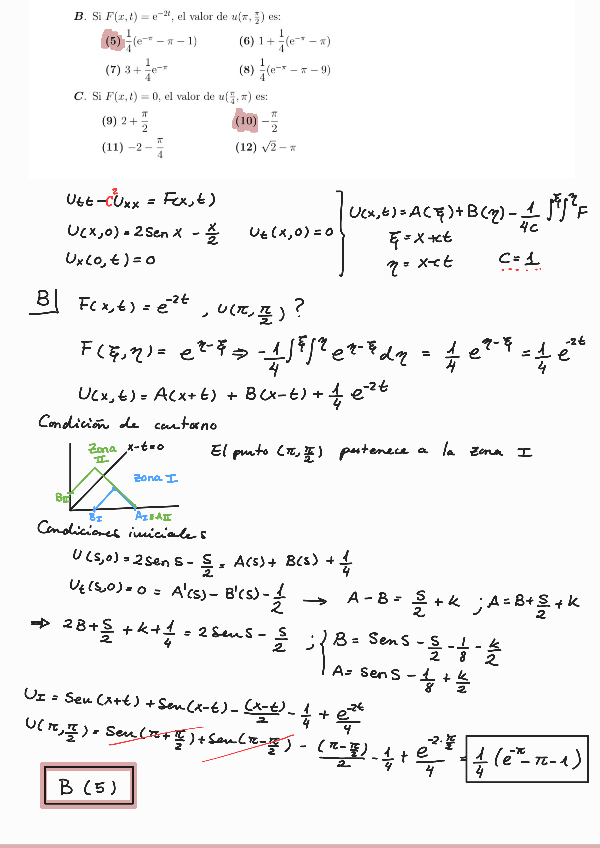 B. Si F(x, t) = e^{-2t}, el valor de u(π, π/2) es:
(5) 1/4(e^{-π} − π − 1) (6) 1 + 1/4(e^{-π} − π)
(7) 3 + 1/4 e^{-π} (8) 1/4(e^{-π} − π − 9)
C. Si F(x, t) = 0, el valor de u(π/4, π) es:
(9) 2 + π/2 (10) −π/2
(11) −2 − π/4 (12) √2 − π
Utt − C²Uxx = F(x,t)
U(x,0) = 2Sen x − x/2 Ut(x,0) = 0
Ux(0,t) = 0
U(x,t) = A(ξ) + B(η) − 1/4C ∫^ξ∫^η F
ξ = x+ct
η = x−ct C = 1
B| F(x,t) = e^{-2t} , U(π, π/2) ?
F(ξ,η) = e^{η−ξ} ⇒ −1/4 ∫^ξ∫^η e^{η−ξ} dη = 1/4 e^{η−ξ} = 1/4 e^{-2t}
U(x,t) = A(x+t) + B(x−t) + 1/4 e^{-2t}
Condición de contorno
Zona II x−t=0
Zona I
BII
BI AI≡AII
El punto (π, π/2) pertenece a la zona I
Condiciones iniciales
U(s,0) = 2Sen s − s/2 = A(s) + B(s) + 1/4
Ut(s,0) = 0 = A'(s) − B'(s) − 1/2 → A − B = s/2 + k ; A = B + s/2 + k
⇒ 2B + s/2 + k + 1/4 = 2Sen s − s/2 ; { B = Sen s − s/2 − 1/8 − k/2
A = Sen s − 1/8 + k/2
UI = Sen(x+t) + Sen(x−t) − (x−t)/2 − 1/4 + e^{-2t}/4
U(π, π/2) = Sen(π + π/2) + Sen(π − π/2) − (π − π/2)/2 − 1/4 + e^{-2·π/2}/4 = 1/4 (e^{-π} − π − 1)
B (5)